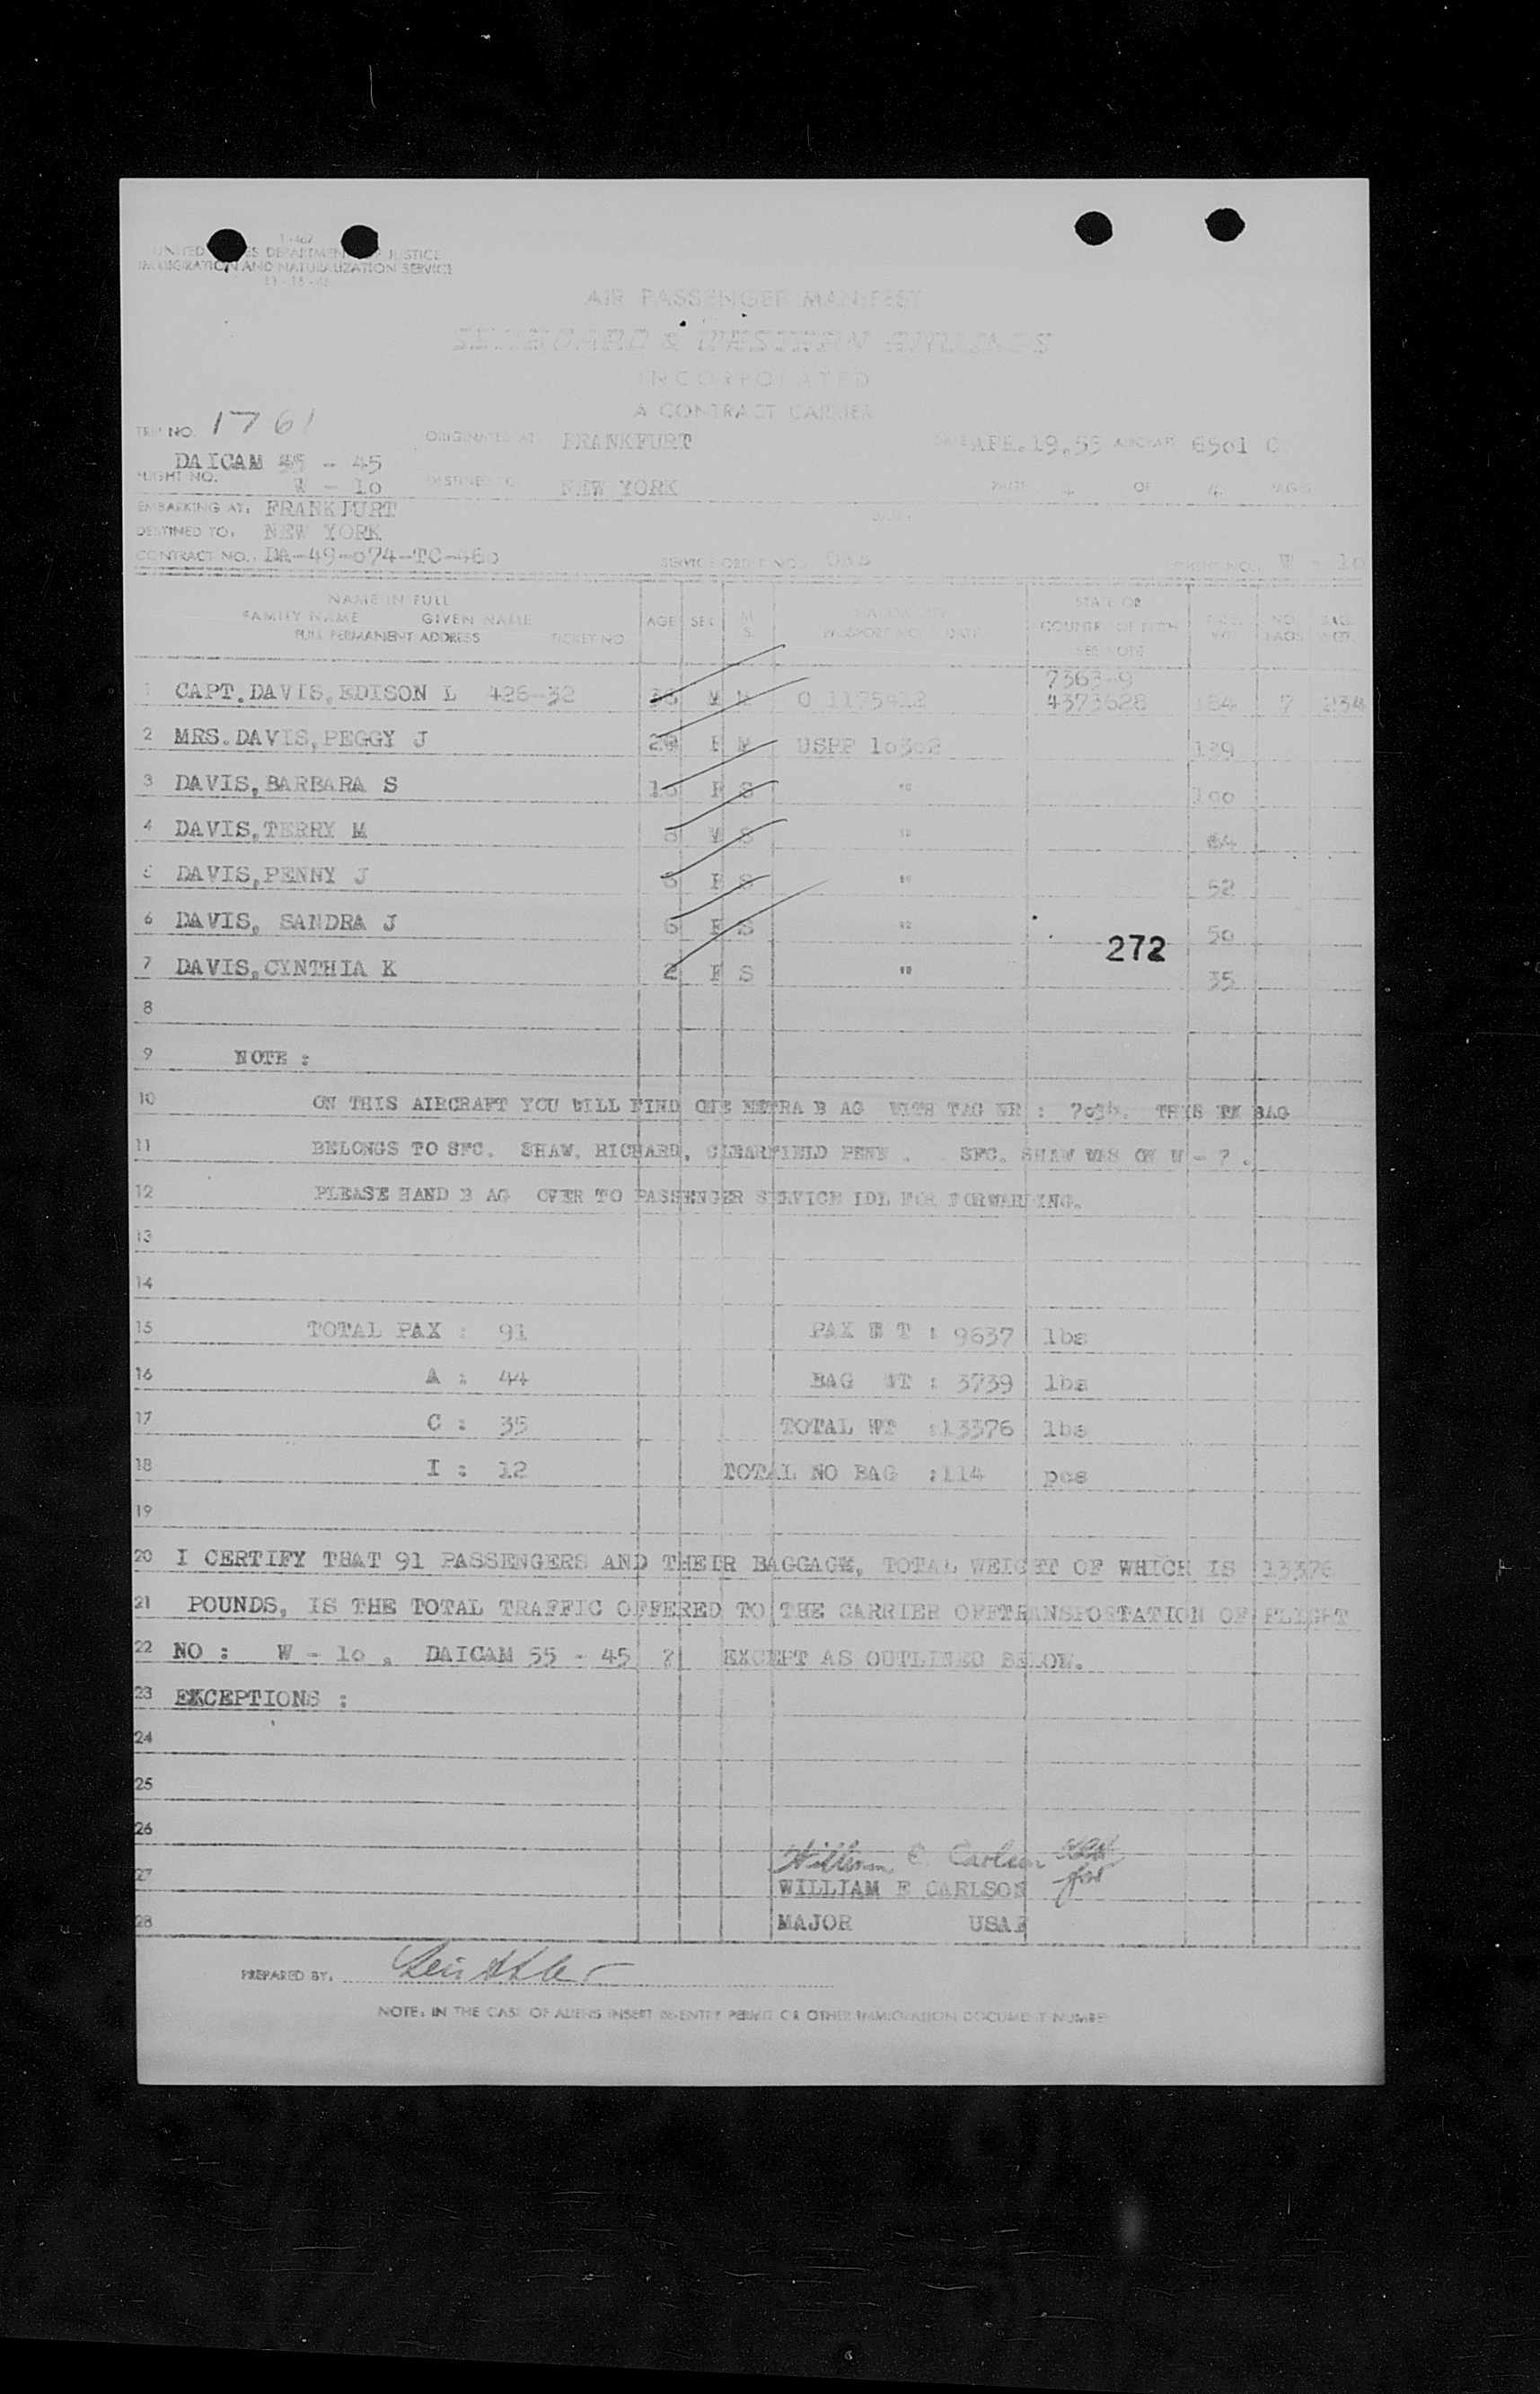 I-467
UNITED STATES DEPARTMENT OF JUSTICE
IMMIGRATION AND NATURALIZATION SERVICE
AIR PASSENGER MANIFEST
SEABOARD & WESTERN AIRLINES
INCORPORATED
A CONTRACT CARRIER
TRIP NO. 1761 ORIGINATED AT FRANKFURT DATE APR.19.55 AIRCRAFT 6501 C
DAICAM 55 - 45
FLIGHT NO. W - 10 DESTINED TO NEW YORK PAGE 4 OF 4 PAGES
EMBARKING AT: FRANKFURT
DESTINED TO: NEW YORK
CONTRACT NO.: DA-49-074-TC-460 SERVICE ORDER NO. FLIGHT NO. W - 10
NAME IN FULL
FAMILY NAME GIVEN NAME
FULL PERMANENT ADDRESS TICKET NO
AGE SEX M S.
PASSPORT NO. DATE
STATE OR COUNTRY OF BIRTH SEE NOTE
NO. BAGS BAG. WGT.
7363-9
1 CAPT.DAVIS,EDISON L 426-32 M M 4373628 184 7 234
2 MRS.DAVIS,PEGGY J 29 F M USPP 10302 129
3 DAVIS,BARBARA S F S " 100
4 DAVIS,TERRY M 8 M S " 64
5 DAVIS,PENNY J F S " 52
6 DAVIS, SANDRA J 6 F S " 50
272
7 DAVIS,CYNTHIA K 2 F S " 35
8
9 NOTE :
10 ON THIS AIRCRAFT YOU WILL FIND ONE EXTRA B AG WITH TAG NR : THIS BAG
11 BELONGS TO SFC. SHAW, RICHARD, CLEARFIELD PENN . SFC. SHAW WAS ON W - 7 .
12 PLEASE HAND B AG OVER TO PASSENGER SERVICE IDL FOR FORWARDING.
13
14
15 TOTAL PAX : 91 PAX W T : 9637 lbs
16 A : 44 BAG WT : 3739 lbs
17 C : 35 TOTAL WT :13376 lbs
18 I : 12 TOTAL NO BAG :114 pcs
19
20 I CERTIFY THAT 91 PASSENGERS AND THEIR BAGGAGE, TOTAL WEIGHT OF WHICH IS 13376
21 POUNDS, IS THE TOTAL TRAFFIC OFFERED TO THE CARRIER OFFTRANSPORTATION OF FLIGHT
22 NO : W - 10 , DAICAM 55 - 45 ? EXCEPT AS OUTLINED BELOW.
23 EXCEPTIONS :
24
25
26
William E. Carlson
27 WILLIAM E CARLSON for
28 MAJOR USAF
PREPARED BY:
NOTE: IN THE CASE OF ALIENS INSERT RE-ENTRY PERMIT OR OTHER IMMIGRATION DOCUMENT NUMBER